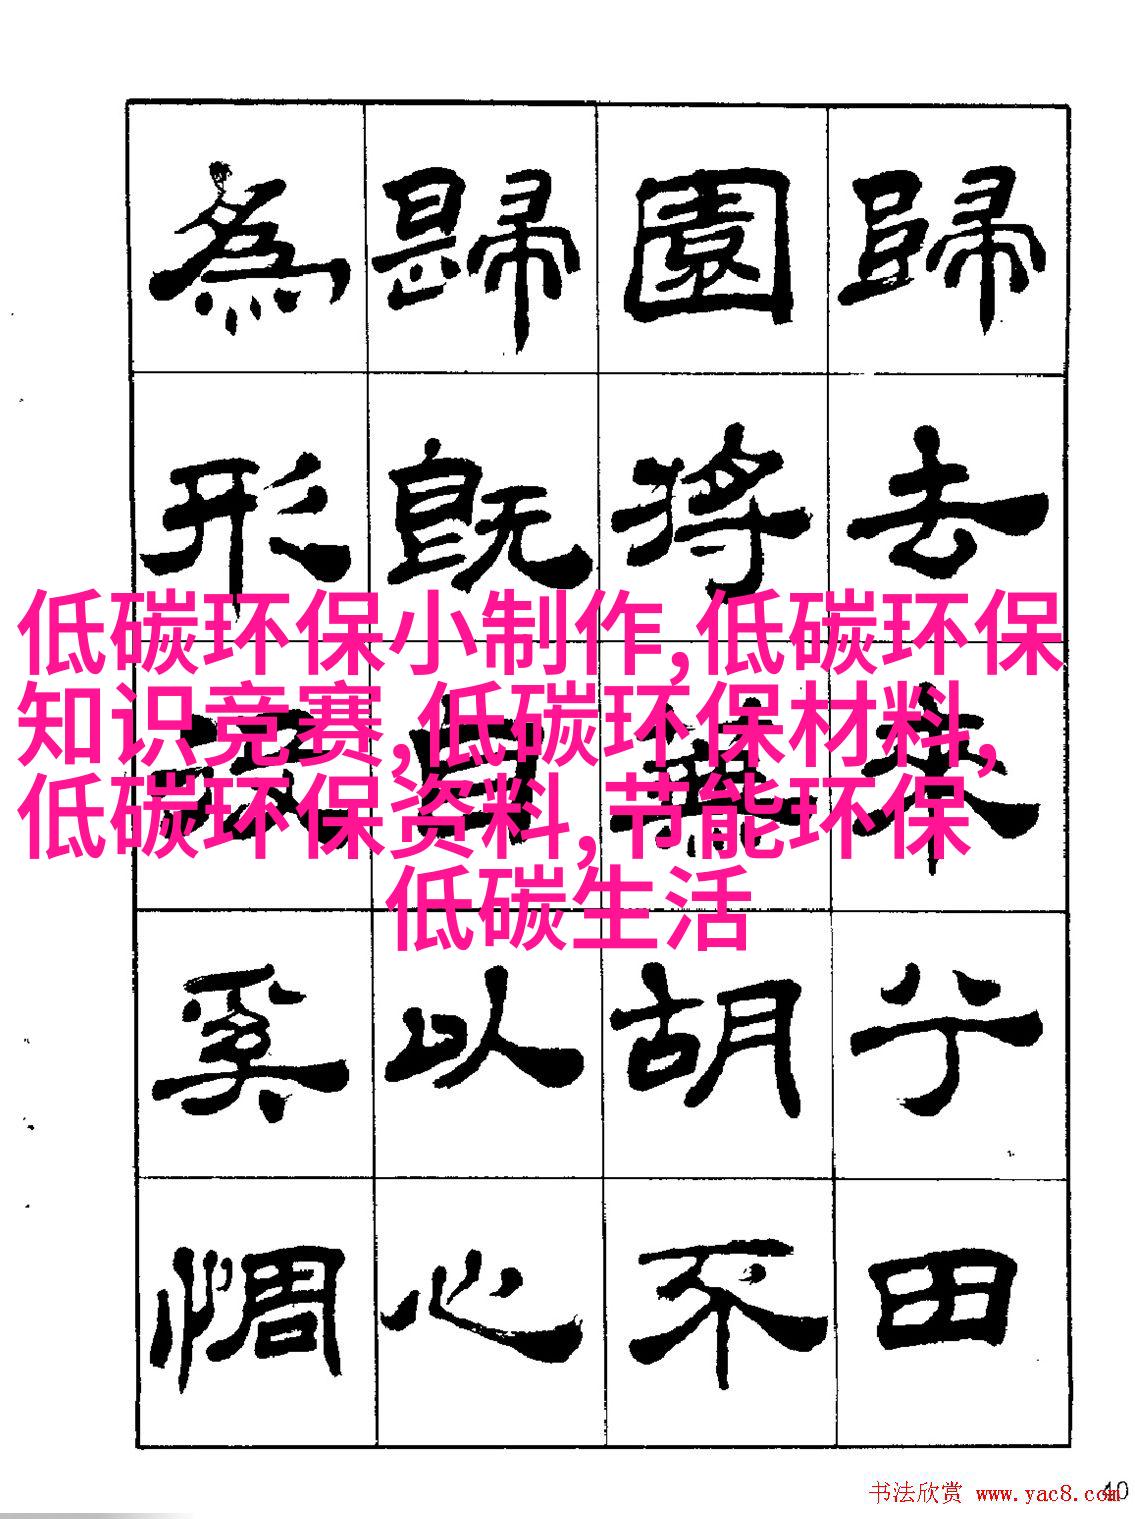 歸去来兮田
園將蕪胡不
歸既自以心
為形奚惆
低碳环保小制作,低碳环保
知识竞赛,低碳环保材料,
低碳环保资料,节能环保
低碳生活
40
书法欣赏 www.yac8.com